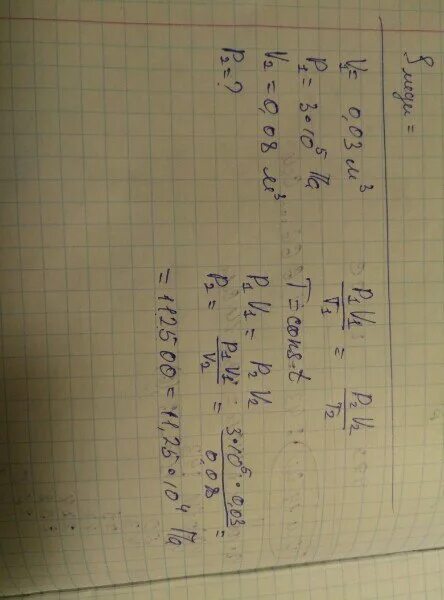 ρ меди =
V₁ = 0,03 м³
P₁ = 3•10⁵ Па
V₂ = 0,08 м³
P₂ = ?
P₁V₁/T₁ = P₂V₂/T₂
T = const
P₁V₁ = P₂V₂
P₂ = P₁V₁/V₂ = 3•10⁵•0,03/0,08 =
= 112500 = 11,25•10⁴ Па